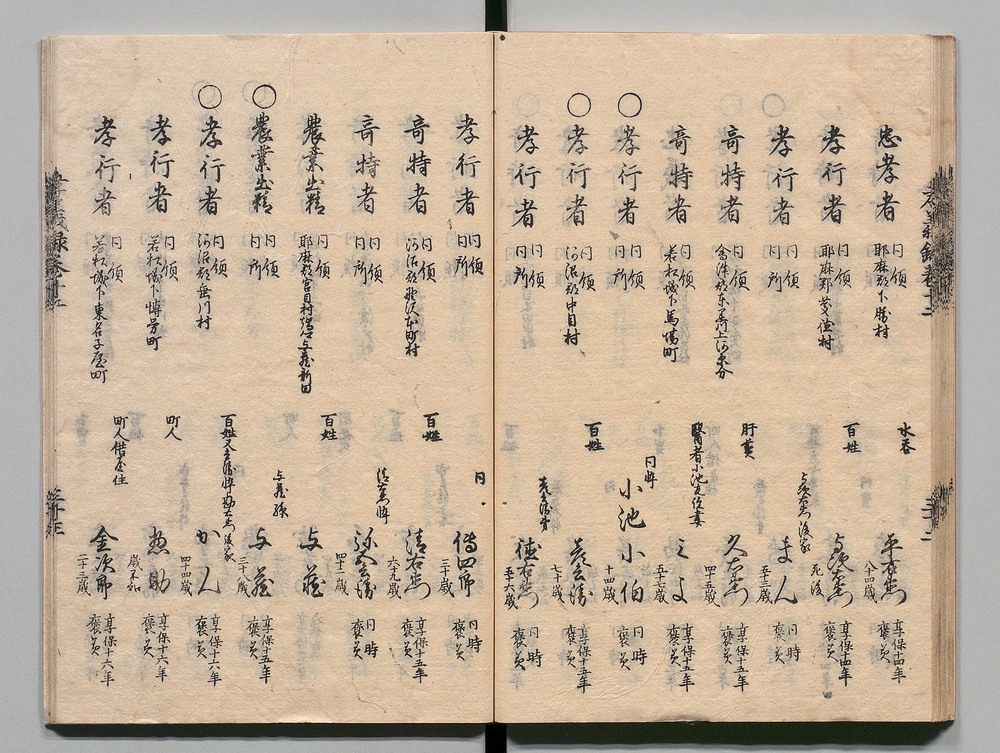 忠孝者 同領 耶麻郡下勝村 水呑 平右衛門 八十四歳 享保十四年 褒美
孝行者 同領 耶麻郡 村 百姓 与次右衛門 死後 享保十四年 褒美
○ 孝行者 同領 同所 与次右衛門後家 まん 五十三歳
奇特者 同領 会津郡 肝煎 久右衛門 四十五歳 享保十五年 褒美
奇特者 同領 若松城下馬場町 医者小池 妻 とよ 五十歳 享保十五年 褒美
○ 孝行者 同領 同所 同悴 小池小伯 十四歳 同時 褒美
○ 孝行者 同領 河沼郡中目村 百姓 七十歳 享保十五年 褒美
孝行者 同領 同所 徳右衛門 五十六歳 同時 褒美
孝行者 同領 同所 同 伝四郎 三十歳 同時 褒美
奇特者 同領 河沼郡野沢本町村 百姓 清右衛門 六十九歳 享保十五年 褒美
奇特者 同領 同所 清右衛門悴 四十二歳 同時 褒美
農業出精 同領 耶麻郡宮目村 与蔵新田 百姓 与蔵 享保十五年 褒美
○ 農業出精 同領 同所 与蔵孫 与蔵 三十八歳
○ 孝行者 同領 河沼郡 川村 百姓 後家 かん 四十四歳 享保十六年 褒美
孝行者 同領 若松城下博労町 町人 惣助 歳不知 享保十六年 褒美
孝行者 同領 若松城下東名子屋町 町人借屋住 金次郎 二十三歳 享保十六年 褒美